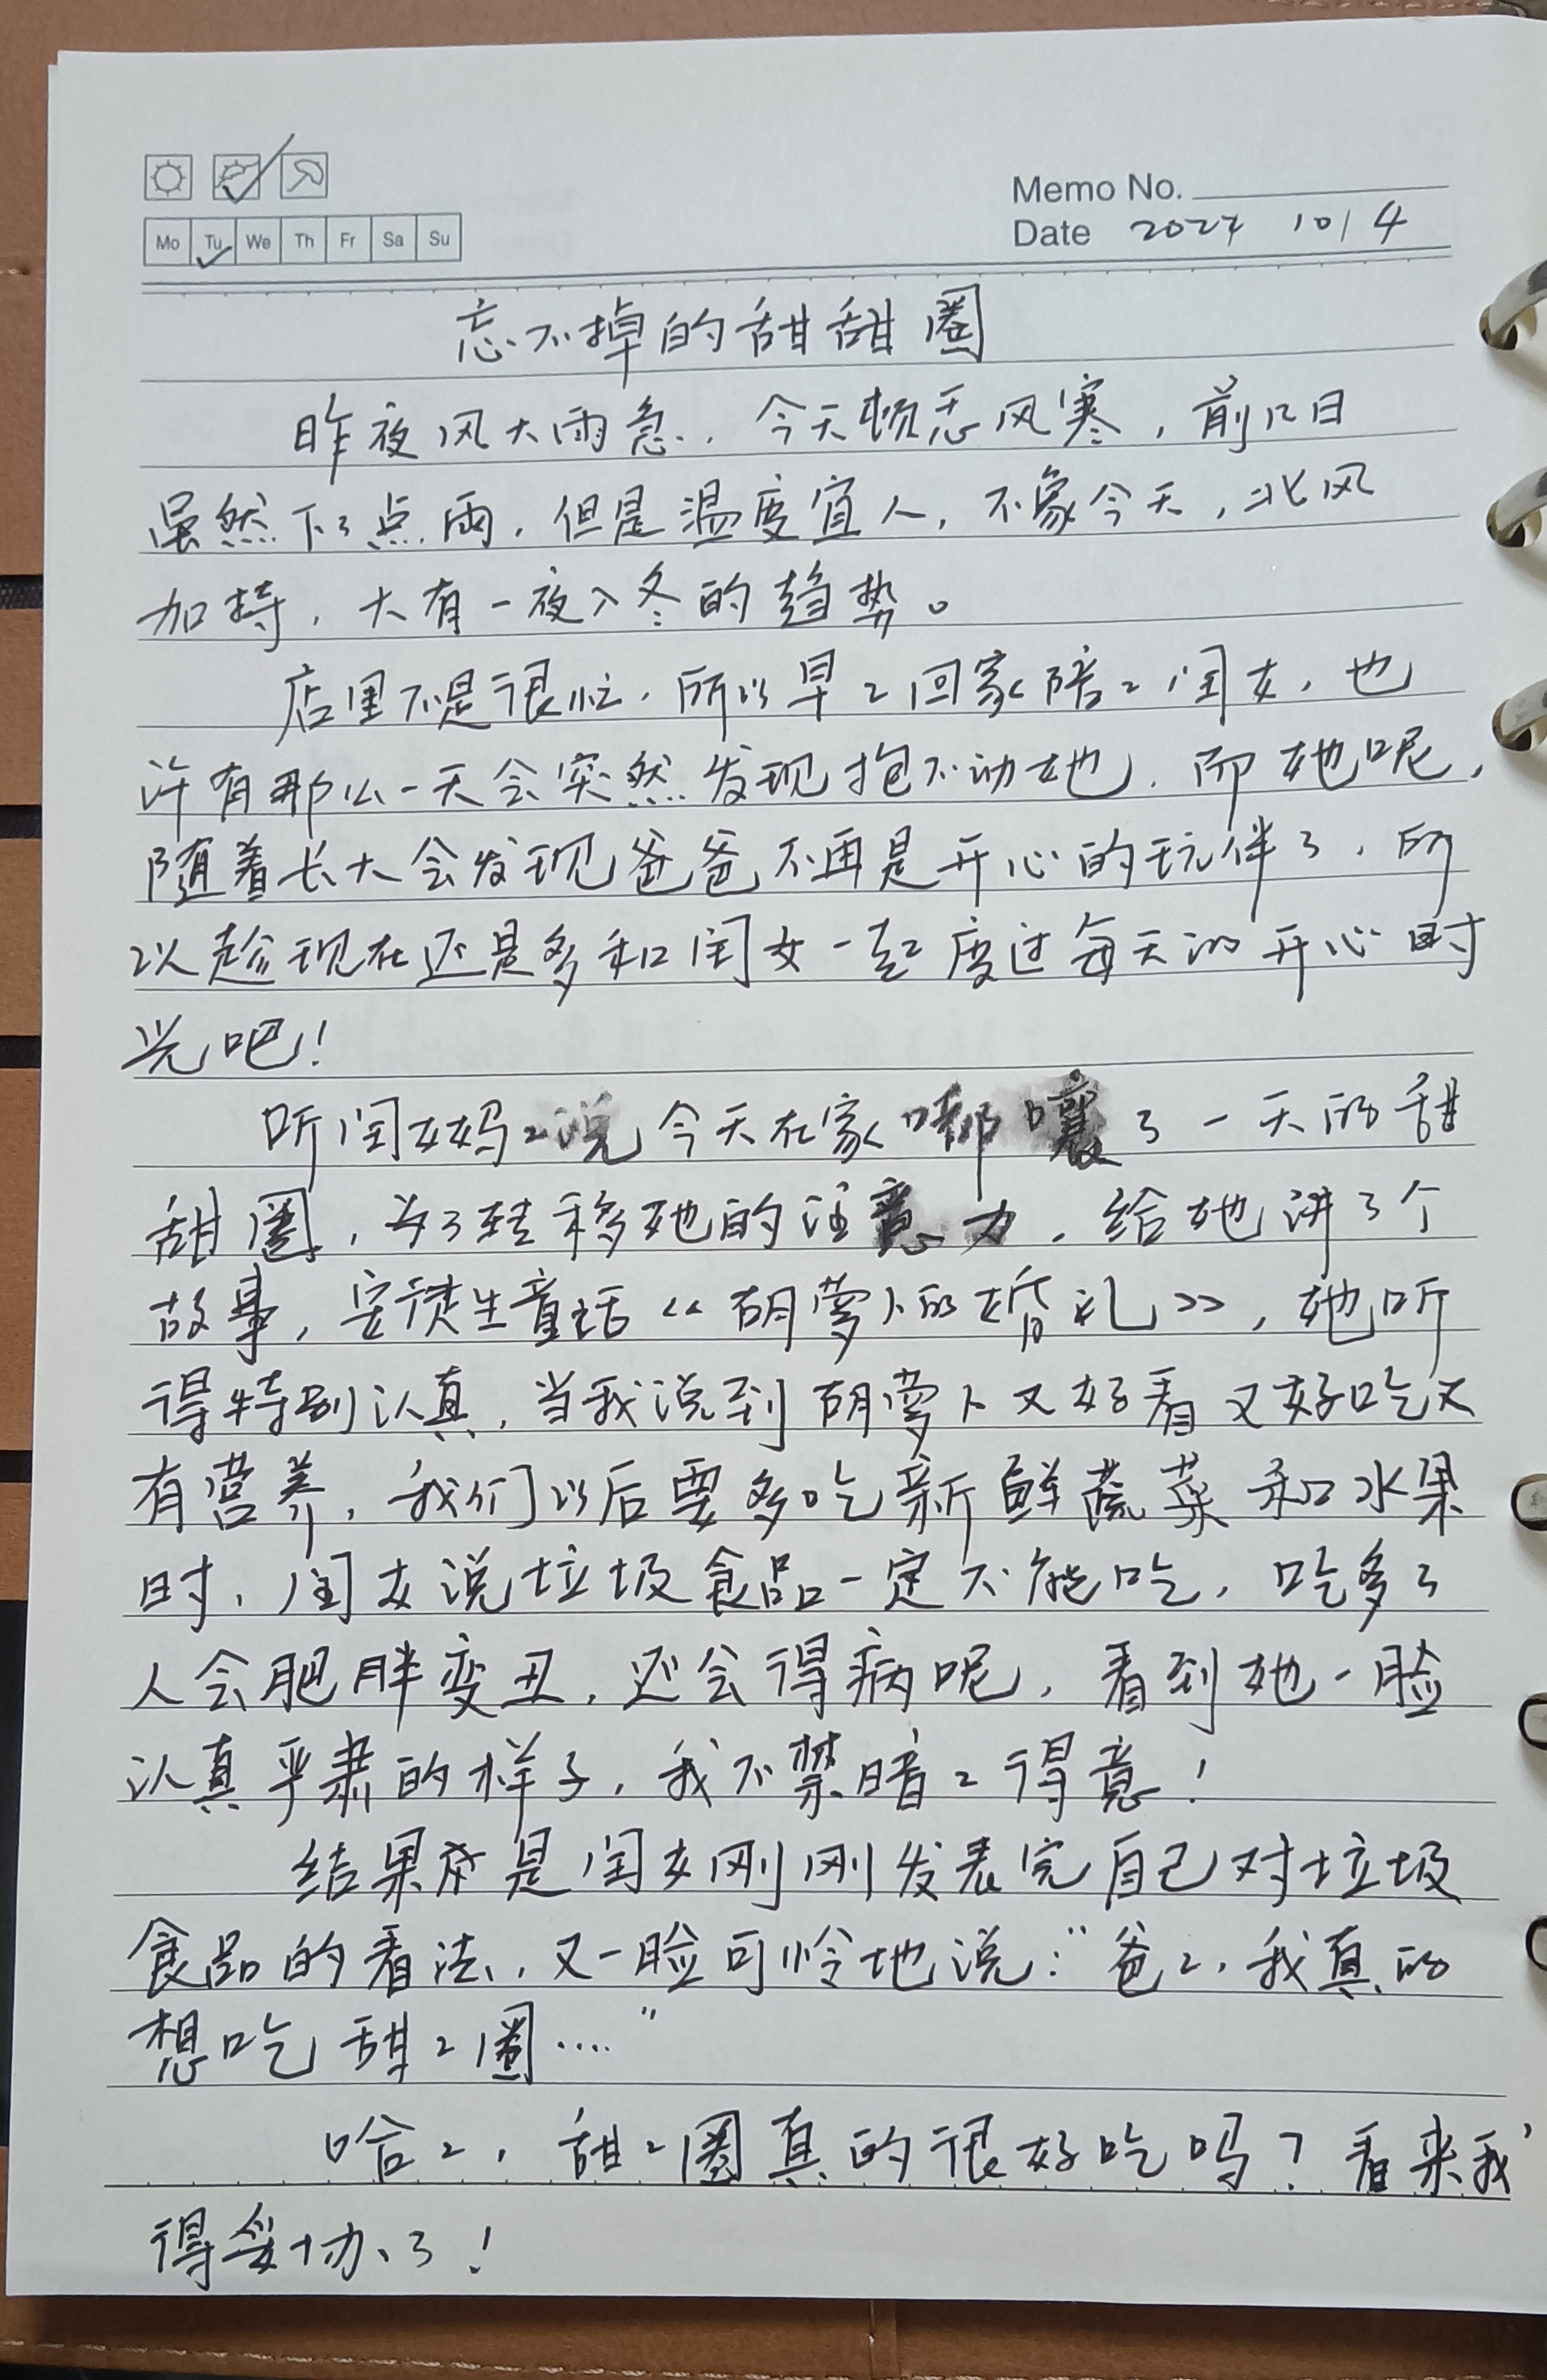 Memo No.
Mo Tu We Th Fr Sa Su
Date 2027 10/4
忘不掉的甜甜圈
昨夜风大雨急，今天顿感风寒，前几日
虽然下了点雨，但是温度宜人，不象今天，北风
加持，大有一夜入冬的趋势。
店里不是很忙，所以早々回家陪々闺女，也
许有那么一天会突然发现抱不动她，而她呢，
随着长大会发现爸爸不再是开心的玩伴了，所
以趁现在还是多和闺女一起度过每天的开心时
光吧！
听闺女妈々说今天在家嘟囔了一天的甜
甜圈，为了转移她的注意力，给她讲了个
故事，安徒生童话《胡萝卜的婚礼》，她听
得特别认真，当我说到胡萝卜又好看又好吃又
有营养，我们以后要多吃新鲜蔬菜和水果
时，闺女说垃圾食品一定不能吃，吃多了
人会肥胖变丑，还会得病呢，看到她一脸
认真严肃的样子，我不禁暗々得意！
结果就是闺女刚刚发表完自己对垃圾
食品的看法，又一脸可怜地说：“爸々，我真的
想吃甜々圈····”
哈々，甜々圈真的很好吃吗？看来我
得妥协了！